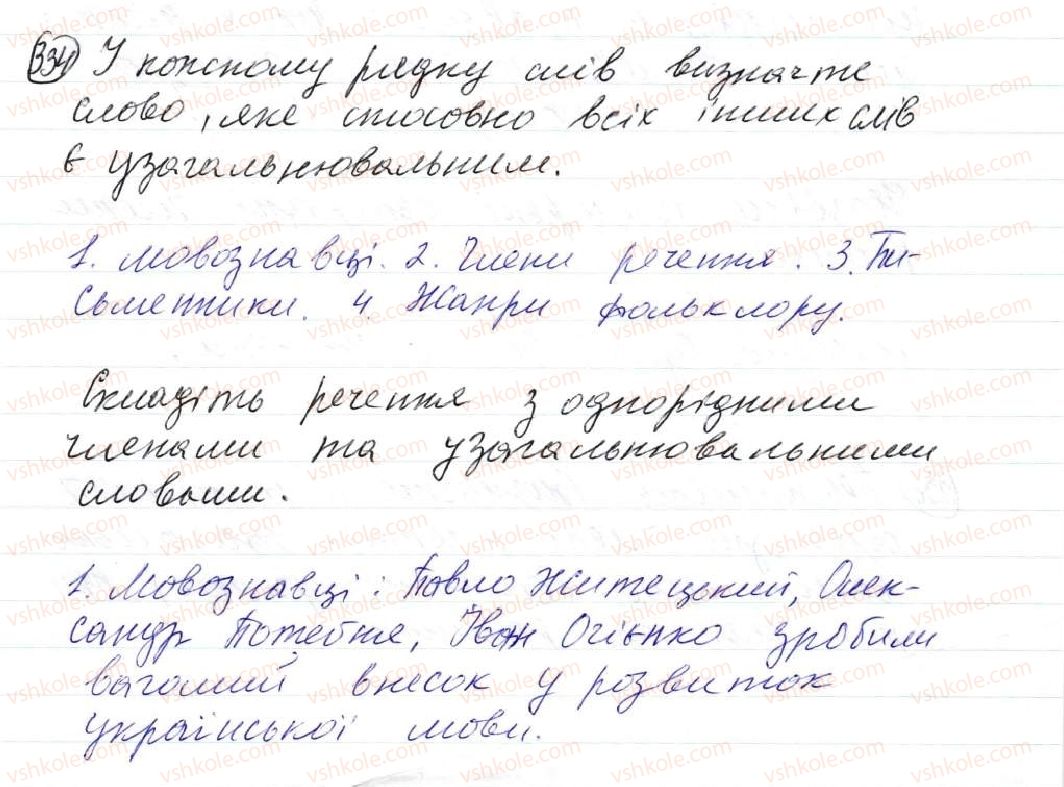 334 У кожному рядку слів визначте
слово, яке стосовно всіх інших слів
є узагальнювальним.
1. Мовознавці. 2. Члени речення. 3. Пи-
сьменники. 4. Жанри фольклору.
Складіть речення з однорідними
членами та узагальнювальними
словами.
1. Мовознавці: Павло Житецький, Олек-
сандр Потебня, Іван Огієнко зробили
вагомий внесок у розвиток
української мови.